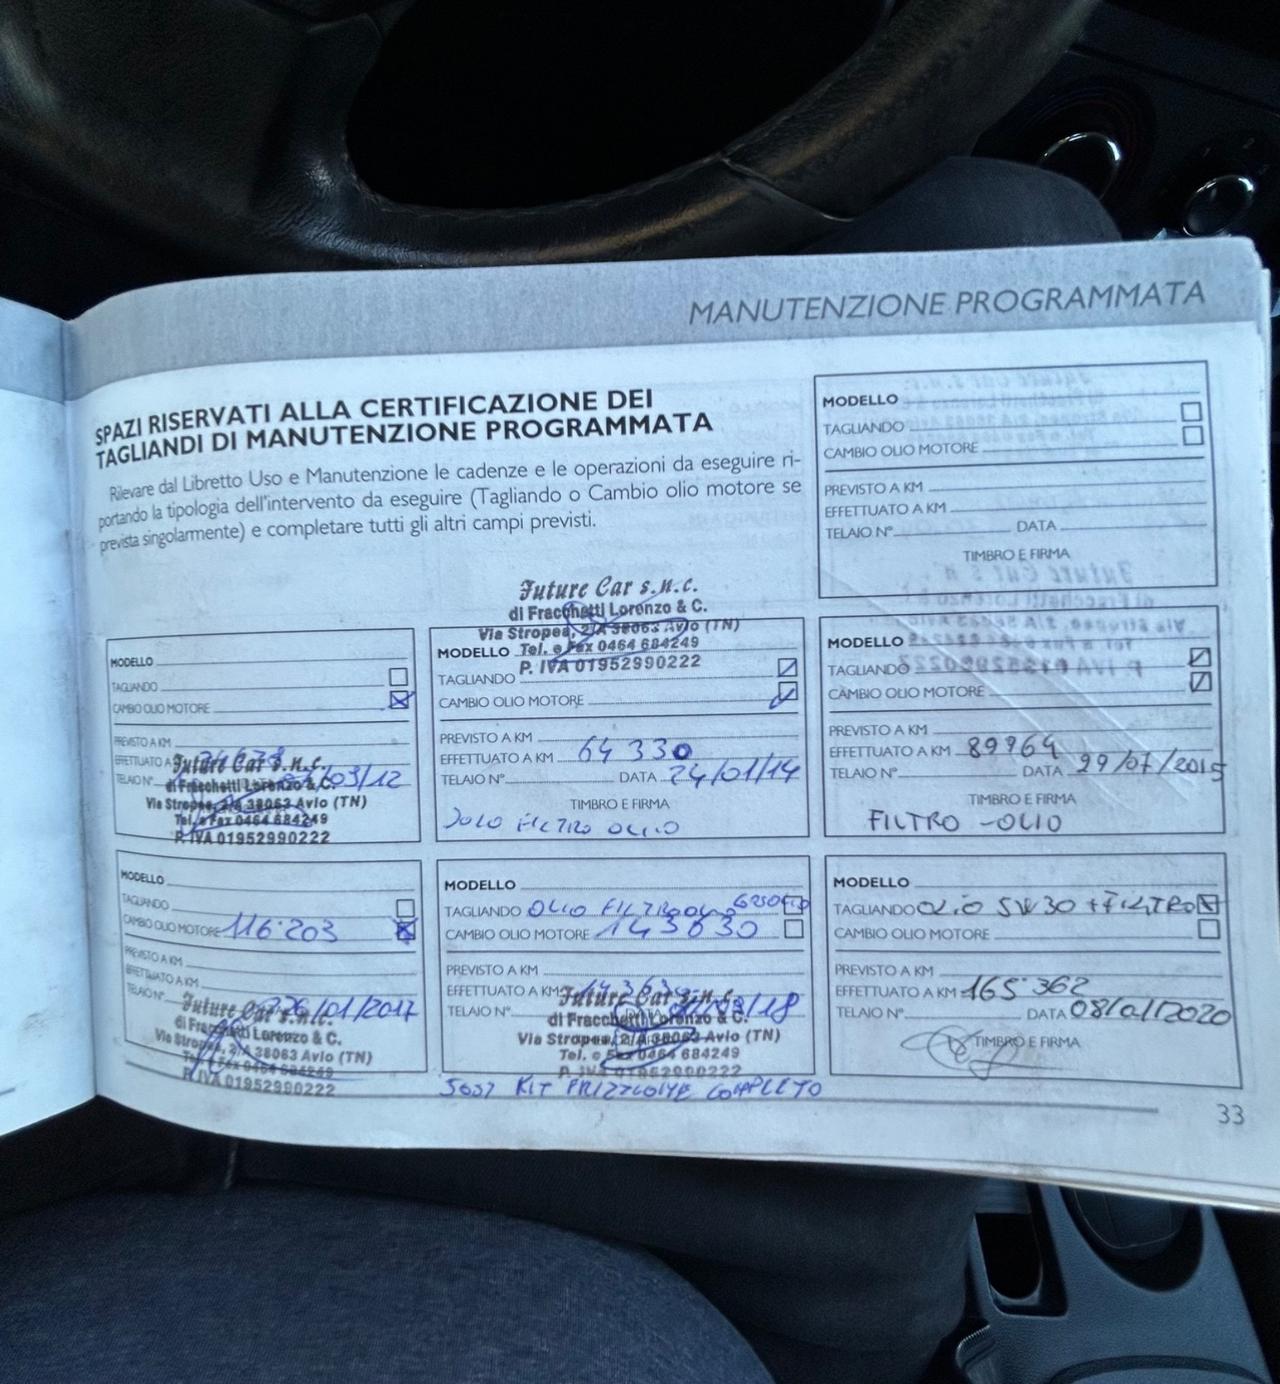 MANUTENZIONE PROGRAMMATA
SPAZI RISERVATI ALLA CERTIFICAZIONE DEI
TAGLIANDI DI MANUTENZIONE PROGRAMMATA
Rilevare dal Libretto Uso e Manutenzione le cadenze e le operazioni da eseguire ri-
portando la tipologia dell'intervento da eseguire (Tagliando o Cambio olio motore se
prevista singolarmente) e completare tutti gli altri campi previsti.
MODELLO
TAGLIANDO
CAMBIO OLIO MOTORE
PREVISTO A KM
EFFETTUATO A KM
TELAIO N° DATA
TIMBRO E FIRMA
MODELLO
TAGLIANDO
CAMBIO OLIO MOTORE
PREVISTO A KM
EFFETTUATO A
TELAIO N° /03/12
Future Car s.n.c.
di Fracchetti Lorenzo & C.
Via Stropea, 2/A 38063 Avio (TN)
Tel. e Fax 0464 684249
P. IVA 01952990222
Future Car s.n.c.
di Fracchetti Lorenzo & C.
Via Stropea, 2/A 38063 Avio (TN)
Tel. e Fax 0464 684249
P. IVA 01952990222
MODELLO
TAGLIANDO
CAMBIO OLIO MOTORE
PREVISTO A KM
EFFETTUATO A KM 64330
TELAIO N° DATA 24/01/14
TIMBRO E FIRMA
SOLO FILTRO OLIO
MODELLO
TAGLIANDO
CAMBIO OLIO MOTORE
PREVISTO A KM
EFFETTUATO A KM 89964
TELAIO N° DATA 29/07/2015
TIMBRO E FIRMA
FILTRO - OLIO
MODELLO
TAGLIANDO
CAMBIO OLIO MOTORE 116.203
PREVISTO A KM
EFFETTUATO A KM
TELAIO N° 26/01/2017
Future Car s.n.c.
di Fracchetti Lorenzo & C.
Via Stropea, 2/A 38063 Avio (TN)
Tel. e Fax 0464 684249
P. IVA 01952990222
MODELLO
TAGLIANDO OLIO FILTRO OLIO GASOLIO
CAMBIO OLIO MOTORE 143630
PREVISTO A KM
EFFETTUATO A KM
TELAIO N° /18
Future Car s.n.c.
di Fracchetti Lorenzo & C.
Via Stropea, 2/A 38063 Avio (TN)
Tel. e Fax 0464 684249
P. IVA 01952990222
SOST KIT FRIZIONE COMPLETO
MODELLO
TAGLIANDO OLIO 5W30 + FILTRO
CAMBIO OLIO MOTORE
PREVISTO A KM
EFFETTUATO A KM 165.362
TELAIO N° DATA 08/01/2020
TIMBRO E FIRMA
33